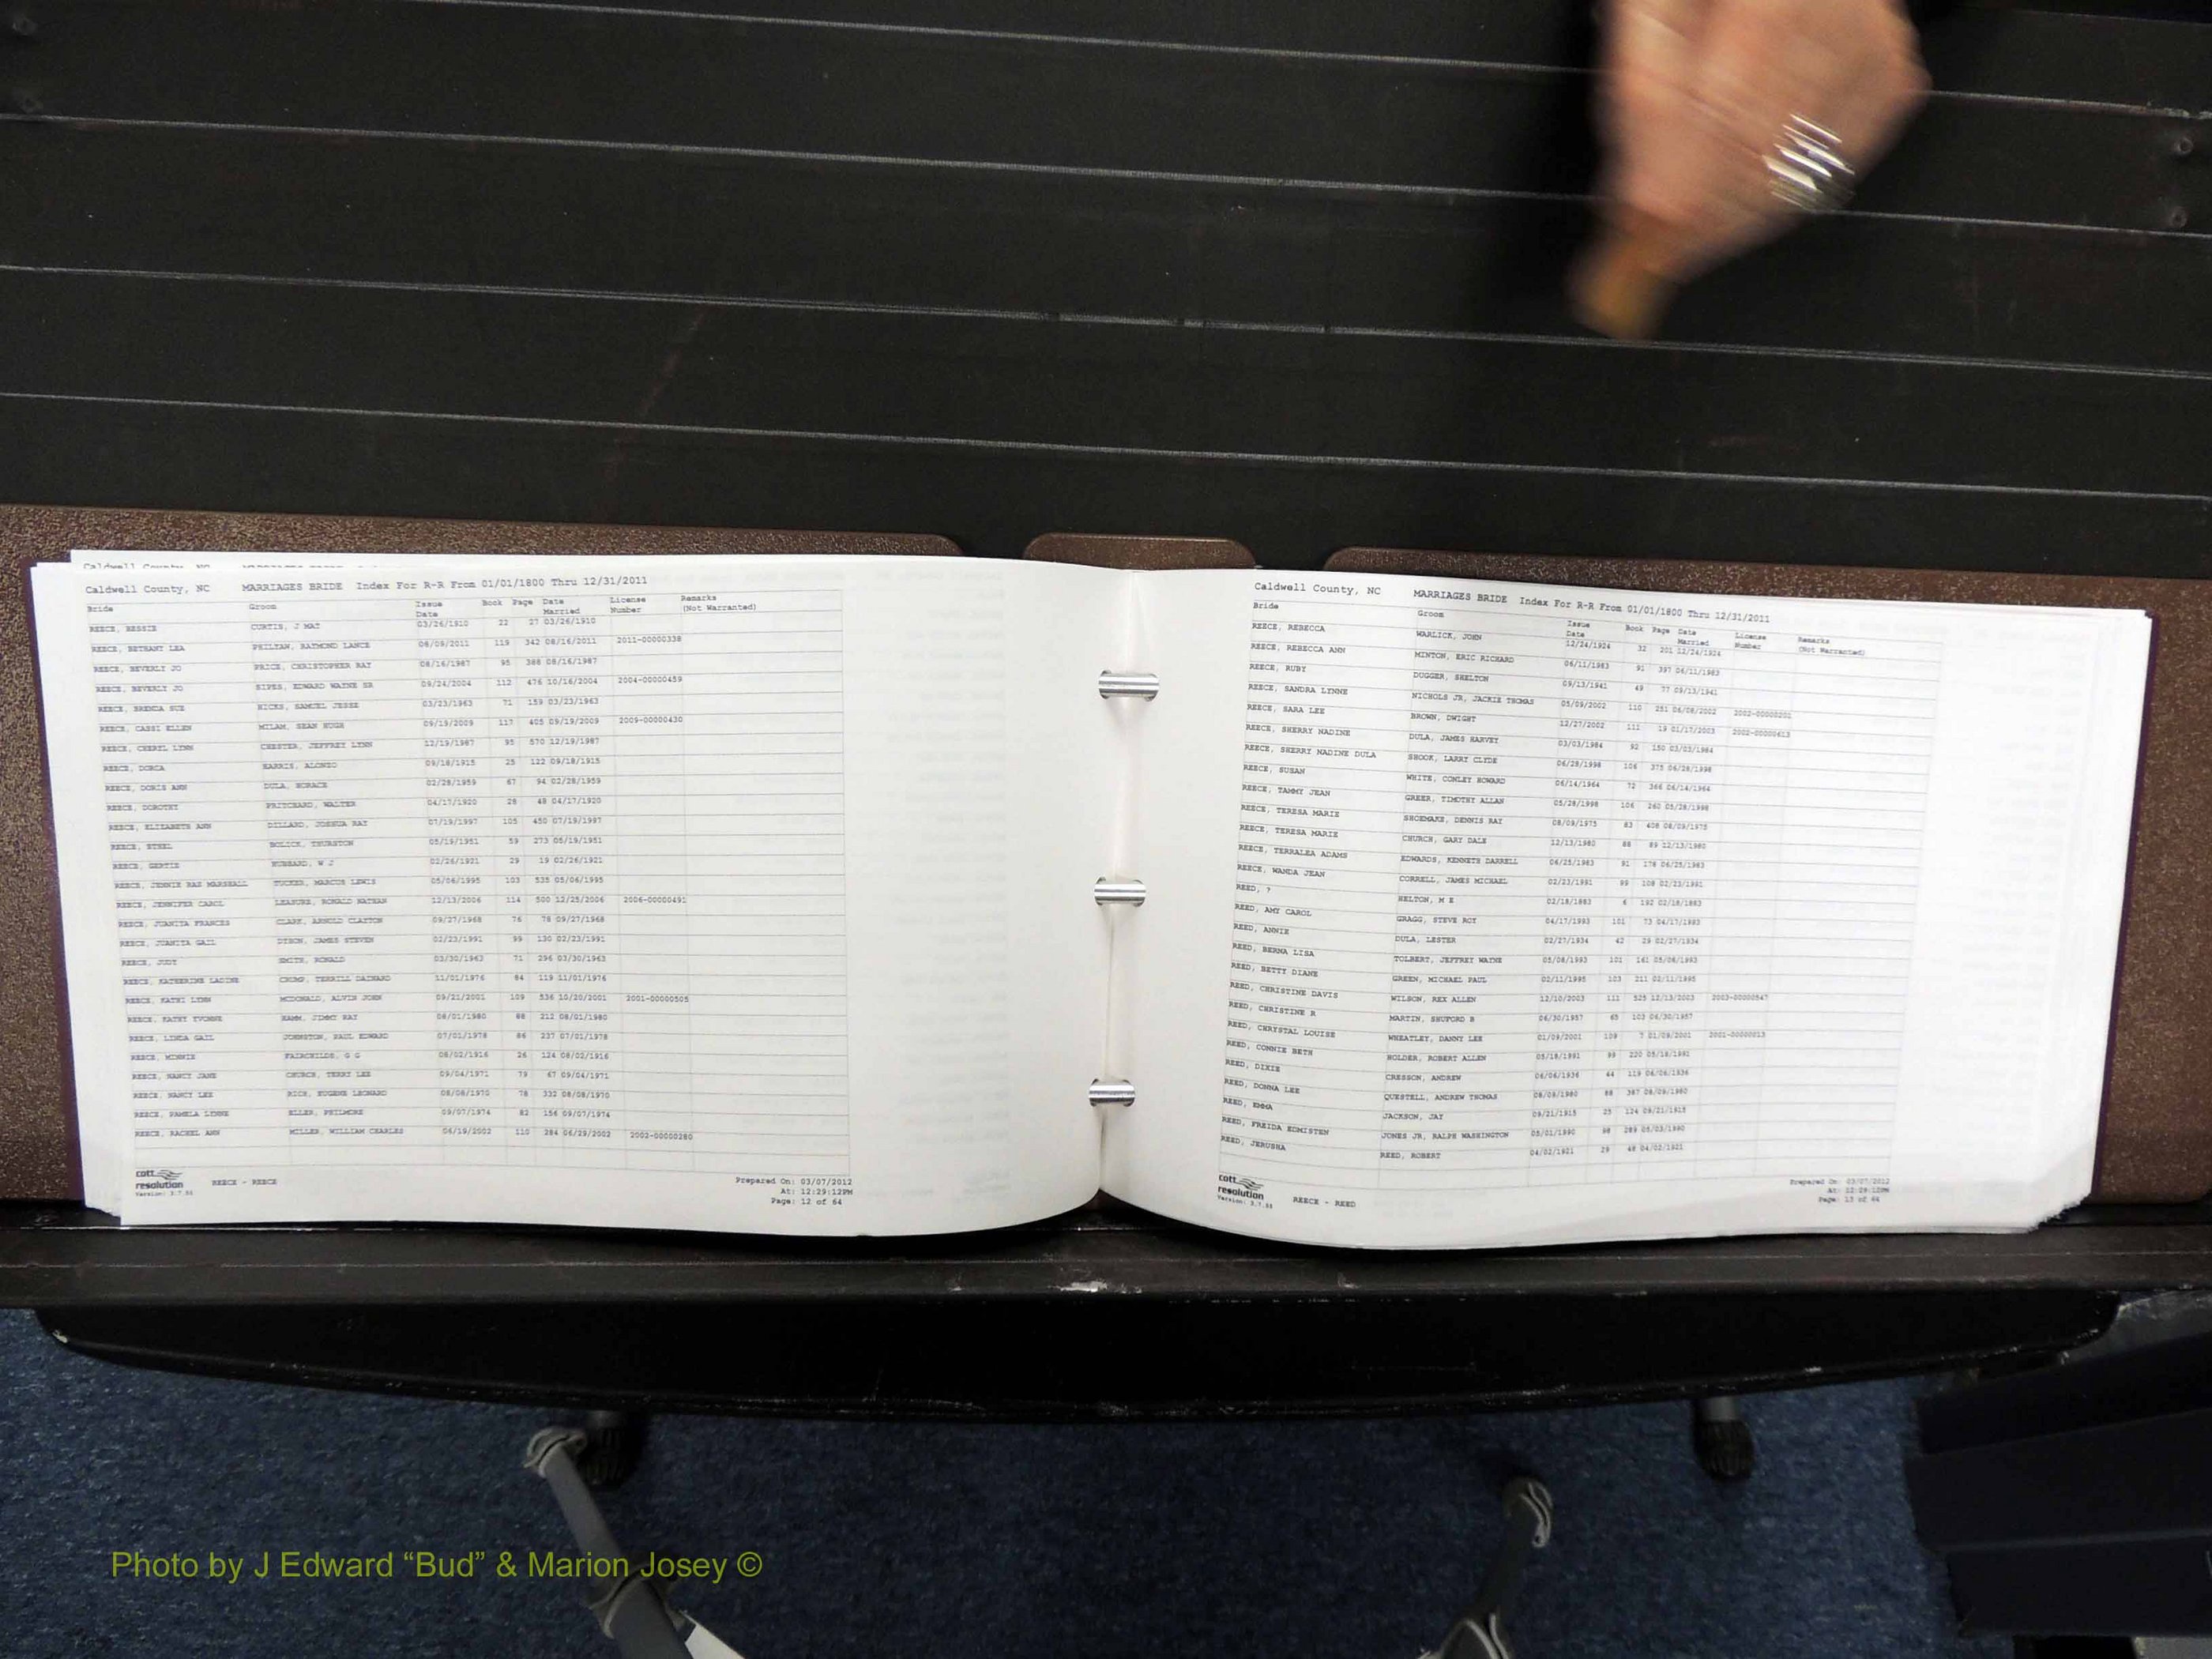 Caldwell County, NC MARRIAGES BRIDE Index For R-R From 01/01/1800 Thru 12/31/2011
Bride Groom Issue Date Book Page Date Married License Number Remarks (Not Warranted)
REECE, BESSIE CURTIS, J MAT 03/26/1910 22 27 03/26/1910
REECE, BETHANY LEA PHILYAW, RAYMOND LANCE 08/09/2011 119 342 08/16/2011 2011-00000338
REECE, BEVERLY JO PRICE, CHRISTOPHER RAY 08/16/1987 95 388 08/16/1987
REECE, BEVERLY JO SIPES, EDWARD WAYNE SR 09/24/2004 112 476 10/16/2004 2004-00000459
REECE, BRENDA SUE HICKS, SAMUEL JESSE 03/23/1963 71 159 03/23/1963
REECE, CASSI ELLEN MILAM, SEAN HUGH 09/19/2009 117 405 09/19/2009 2009-00000430
REECE, CHERYL LYNN CHESTER, JEFFREY LYNN 12/19/1987 95 570 12/19/1987
REECE, DORCA HARRIS, ALONZO 09/18/1915 25 122 09/18/1915
REECE, DORIS ANN DULA, HORACE 02/28/1959 67 94 02/28/1959
REECE, DOROTHY PRITCHARD, WALTER 04/17/1920 28 48 04/17/1920
REECE, ELIZABETH ANN DILLARD, JOSHUA RAY 07/19/1997 105 450 07/19/1997
REECE, ETHEL BOLICK, THURSTON 05/19/1951 59 273 05/19/1951
REECE, GERTIE HUBBARD, W J 02/26/1921 29 19 02/26/1921
REECE, JENNIE RAE MARSHALL TUCKER, MARCUS LEWIS 05/06/1995 103 535 05/06/1995
REECE, JENNIFER CAROL LEASURE, RONALD NATHAN 12/13/2006 114 500 12/25/2006 2006-00000491
REECE, JUANITA FRANCES CLARK, ARNOLD CLAYTON 09/27/1968 76 78 09/27/1968
REECE, JUANITA GAIL DYSON, JAMES STEVEN 02/23/1991 99 130 02/23/1991
REECE, JUDY SMITH, RONALD 03/30/1963 71 296 03/30/1963
REECE, KATHERINE LADINE CRUMP, TERRILL 11/01/1976 84 119 11/01/1976
REECE, KATHI LYNN MCDONALD, ALVIN JOHN 09/21/2001 109 536 10/20/2001 2001-00000505
REECE, KATHY YVONNE HAMM, JIMMY RAY 08/01/1980 88 212 08/01/1980
REECE, LINDA GAIL JOHNSTON, PAUL EDWARD 07/01/1978 86 237 07/01/1978
REECE, MINNIE FAIRCHILDS, G G 08/02/1916 26 124 08/02/1916
REECE, NANCY JANE CHURCH, TERRY LEE 09/04/1971 79 67 09/04/1971
REECE, NANCY LEE RICH, EUGENE LEONARD 08/08/1970 78 332 08/08/1970
REECE, PAMELA LYNNE ELLER, PHILMORE 09/07/1974 82 156 09/07/1974
REECE, RACHEL ANN MILLER, WILLIAM CHARLES 06/19/2002 110 284 06/29/2002 2002-00000280
cott resolution
REECE - REECE
Prepared On: 03/07/2012
At: 12:29:12PM
Page: 12 of 64
Caldwell County, NC MARRIAGES BRIDE Index For R-R From 01/01/1800 Thru 12/31/2011
Bride Groom Issue Date Book Page Date Married License Number Remarks (Not Warranted)
REECE, REBECCA WARLICK, JOHN 12/24/1924 32 201 12/24/1924
REECE, REBECCA ANN MINTON, ERIC RICHARD 06/11/1983 91 397 06/11/1983
REECE, RUBY DUGGER, SHELTON 09/13/1941 49 77 09/13/1941
REECE, SANDRA LYNNE NICHOLS JR, JACKIE THOMAS 05/09/2002 110 251 06/08/2002 2002-00000201
REECE, SARA LEE BROWN, DWIGHT 12/27/2002 111 19 01/17/2003 2002-00000613
REECE, SHERRY NADINE DULA, JAMES HARVEY 03/03/1984 92 150 03/03/1984
REECE, SHERRY NADINE DULA SHOOK, LARRY CLYDE 06/28/1998 106 375 06/28/1998
REECE, SUSAN WHITE, CONLEY HOWARD 06/14/1964 72 366 06/14/1964
REECE, TAMMY JEAN GREER, TIMOTHY ALLAN 05/28/1998 106 260 05/28/1998
REECE, TERESA MARIE SHOEMAKE, DENNIS RAY 08/09/1975 83 408 08/09/1975
REECE, TERESA MARIE CHURCH, GARY DALE 12/13/1980 88 89 12/13/1980
REECE, TERRALEA ADAMS EDWARDS, KENNETH DARRELL 06/25/1983 91 178 06/25/1983
REECE, WANDA JEAN CORRELL, JAMES MICHAEL 02/23/1991 99 108 02/23/1991
REED, ? HELTON, M E 02/18/1883 6 192 02/18/1883
REED, AMY CAROL GRAGG, STEVE ROY 04/17/1993 101 73 04/17/1993
REED, ANNIE DULA, LESTER 02/27/1934 42 29 02/27/1934
REED, BERNA LISA TOLBERT, JEFFREY WAYNE 05/08/1993 101 161 05/08/1993
REED, BETTY DIANE GREEN, MICHAEL PAUL 02/11/1995 103 211 02/11/1995
REED, CHRISTINE DAVIS WILSON, REX ALLEN 12/10/2003 111 525 12/13/2003 2003-00000547
REED, CHRISTINE R MARTIN, SHUFORD B 06/30/1957 65 103 06/30/1957
REED, CHRYSTAL LOUISE WHEATLEY, DANNY LEE 01/09/2001 109 7 01/09/2001 2001-00000013
REED, CONNIE BETH HOLDER, ROBERT ALLEN 05/18/1991 99 220 05/18/1991
REED, DIXIE CRESSON, ANDREW 06/06/1936 44 119 06/06/1936
REED, DONNA LEE QUESTELL, ANDREW THOMAS 08/08/1980 88 387 08/09/1980
REED, EMMA JACKSON, JAY 09/21/1915 25 124 09/21/1915
REED, FREIDA EDMISTEN JONES JR, RALPH WASHINGTON 05/01/1990 98 289 05/03/1990
REED, JERUSHA REED, ROBERT 04/02/1921 29 48 04/02/1921
cott resolution
REECE - REED
Prepared On: 03/07/2012
At: 12:29:12PM
Page: 13 of 64
Photo by J Edward “Bud” & Marion Josey ©